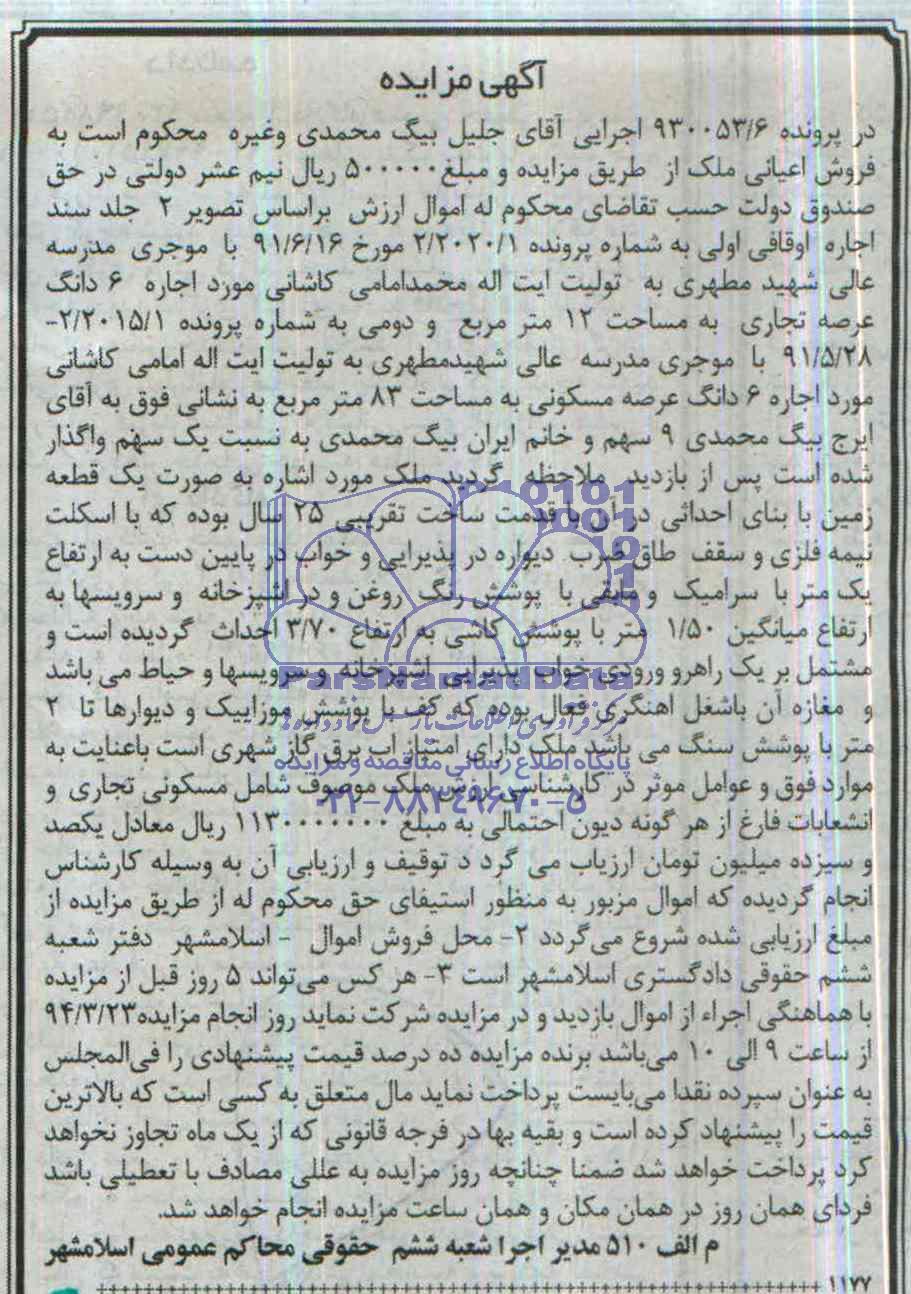 آگهی مزایده
در پرونده ۹۳۰۰۵۳/۶ اجرایی آقای جلیل بیگ محمدی وغیره محکوم است به
فروش اعیانی ملک از طریق مزایده و مبلغ۵۰۰۰۰۰ ریال نیم عشر دولتی در حق
صندوق دولت حسب تقاضای محکوم له اموال ارزش براساس تصویر ۲ جلد سند
اجاره اوقافی اولی به شماره پرونده ۲/۲۰۲۰/۱ مورخ ۹۱/۶/۱۶ با موجری مدرسه
عالی شهید مطهری به تولیت ایت اله محمدامامی کاشانی مورد اجاره ۶ دانگ
عرصه تجاری به مساحت ۱۲ متر مربع و دومی به شماره پرونده ۲/۲۰۱۵/۱-
۹۱/۵/۲۸ با موجری مدرسه عالی شهیدمطهری به تولیت ایت اله امامی کاشانی
مورد اجاره ۶ دانگ عرصه مسکونی به مساحت ۸۳ متر مربع به نشانی فوق به آقای
ایرج بیگ محمدی ۹ سهم و خانم ایران بیگ محمدی به نسبت یک سهم واگذار
شده است پس از بازدید ملاحظه گردید ملک مورد اشاره به صورت یک قطعه
زمین با بنای احداثی در آن با قدمت ساخت تقریبی ۲۵ سال بوده که با اسکلت
نیمه فلزی و سقف طاق ضرب دیواره در پذیرایی و خواب در پایین دست به ارتفاع
یک متر با سرامیک و مابقی با پوشش رنگ روغن و در اشپزخانه و سرویسها به
ارتفاع میانگین ۱/۵۰ متر با پوشش کاشی به ارتفاع ۳/۷۰ احداث گردیده است و
مشتمل بر یک راهرو ورودی خواب پذیرایی اشپزخانه و سرویسها و حیاط می باشد
و مغازه آن باشغل اهنگری فعال بوده که کف با پوشش موزاییک و دیوارها تا ۲
متر با پوشش سنگ می باشد ملک دارای امتیاز اب برق گاز شهری است باعنایت به
موارد فوق و عوامل موثر در کارشناسی ارزش ملک موصوف شامل مسکونی تجاری و
انشعابات فارغ از هر گونه دیون احتمالی به مبلغ ۱۱۳۰۰۰۰۰۰۰ ریال معادل یکصد
و سیزده میلیون تومان ارزیاب می گرد د توقیف و ارزیابی آن به وسیله کارشناس
انجام گردیده که اموال مزبور به منظور استیفای حق محکوم له از طریق مزایده از
مبلغ ارزیابی شده شروع می‌گردد ۲- محل فروش اموال - اسلامشهر دفتر شعبه
ششم حقوقی دادگستری اسلامشهر است ۳- هر کس می‌تواند ۵ روز قبل از مزایده
با هماهنگی اجراء از اموال بازدید و در مزایده شرکت نماید روز انجام مزایده۹۴/۳/۲۳
از ساعت ۹ الی ۱۰ می‌باشد برنده مزایده ده درصد قیمت پیشنهادی را فی‌المجلس
به عنوان سپرده نقدا می‌بایست پرداخت نماید مال متعلق به کسی است که بالاترین
قیمت را پیشنهاد کرده است و بقیه بها در فرجه قانونی که از یک ماه تجاوز نخواهد
کرد پرداخت خواهد شد ضمنا چنانچه روز مزایده به عللی مصادف با تعطیلی باشد
فردای همان روز در همان مکان و همان ساعت مزایده انجام خواهد شد.
م الف ۵۱۰ مدیر اجرا شعبه ششم حقوقی محاکم عمومی اسلامشهر
۱۱۷۷
ParsNamadData
پایگاه اطلاع رسانی مناقصه و مزایده
۰۲۱-۸۸۳۴۹۶۷۰-۵